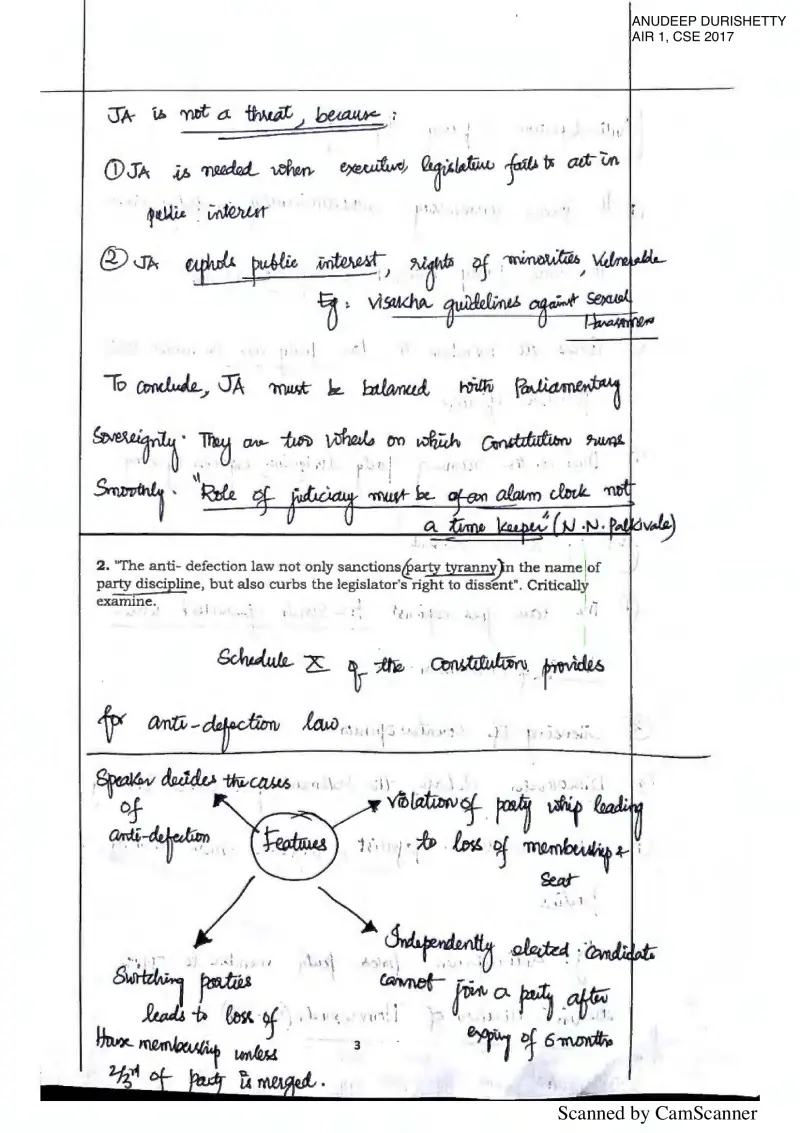 ANUDEEP DURISHETTY
AIR 1, CSE 2017
JA is not a threat, because :
① JA is needed when executive, legislature fails to act in
public interest
② JA upholds public interest, rights of minorities, Vulnerable
Eg : Visakha guidelines against Sexual
Harassment
To conclude, JA must be balanced with Parliamentary
Sovereignty. They are two wheels on which Constitution runs
Smoothly. "Role of judiciary must be of an alarm clock not
a time keeper" (N.N. Palkivale)
2. "The anti- defection law not only sanctions party tyranny in the name of
party discipline, but also curbs the legislator's right to dissent". Critically
examine.
Schedule X of the Constitution provides
for anti-defection law.
Speaker decides the cases
of
anti-defection
Features
Violation of party whip leading
to loss of membership &
Seat
Switching parties
leads to loss of
House membership unless
2/3rd of party is merged.
Independently elected candidate
cannot join a party after
expiry of 6 months
3
Scanned by CamScanner